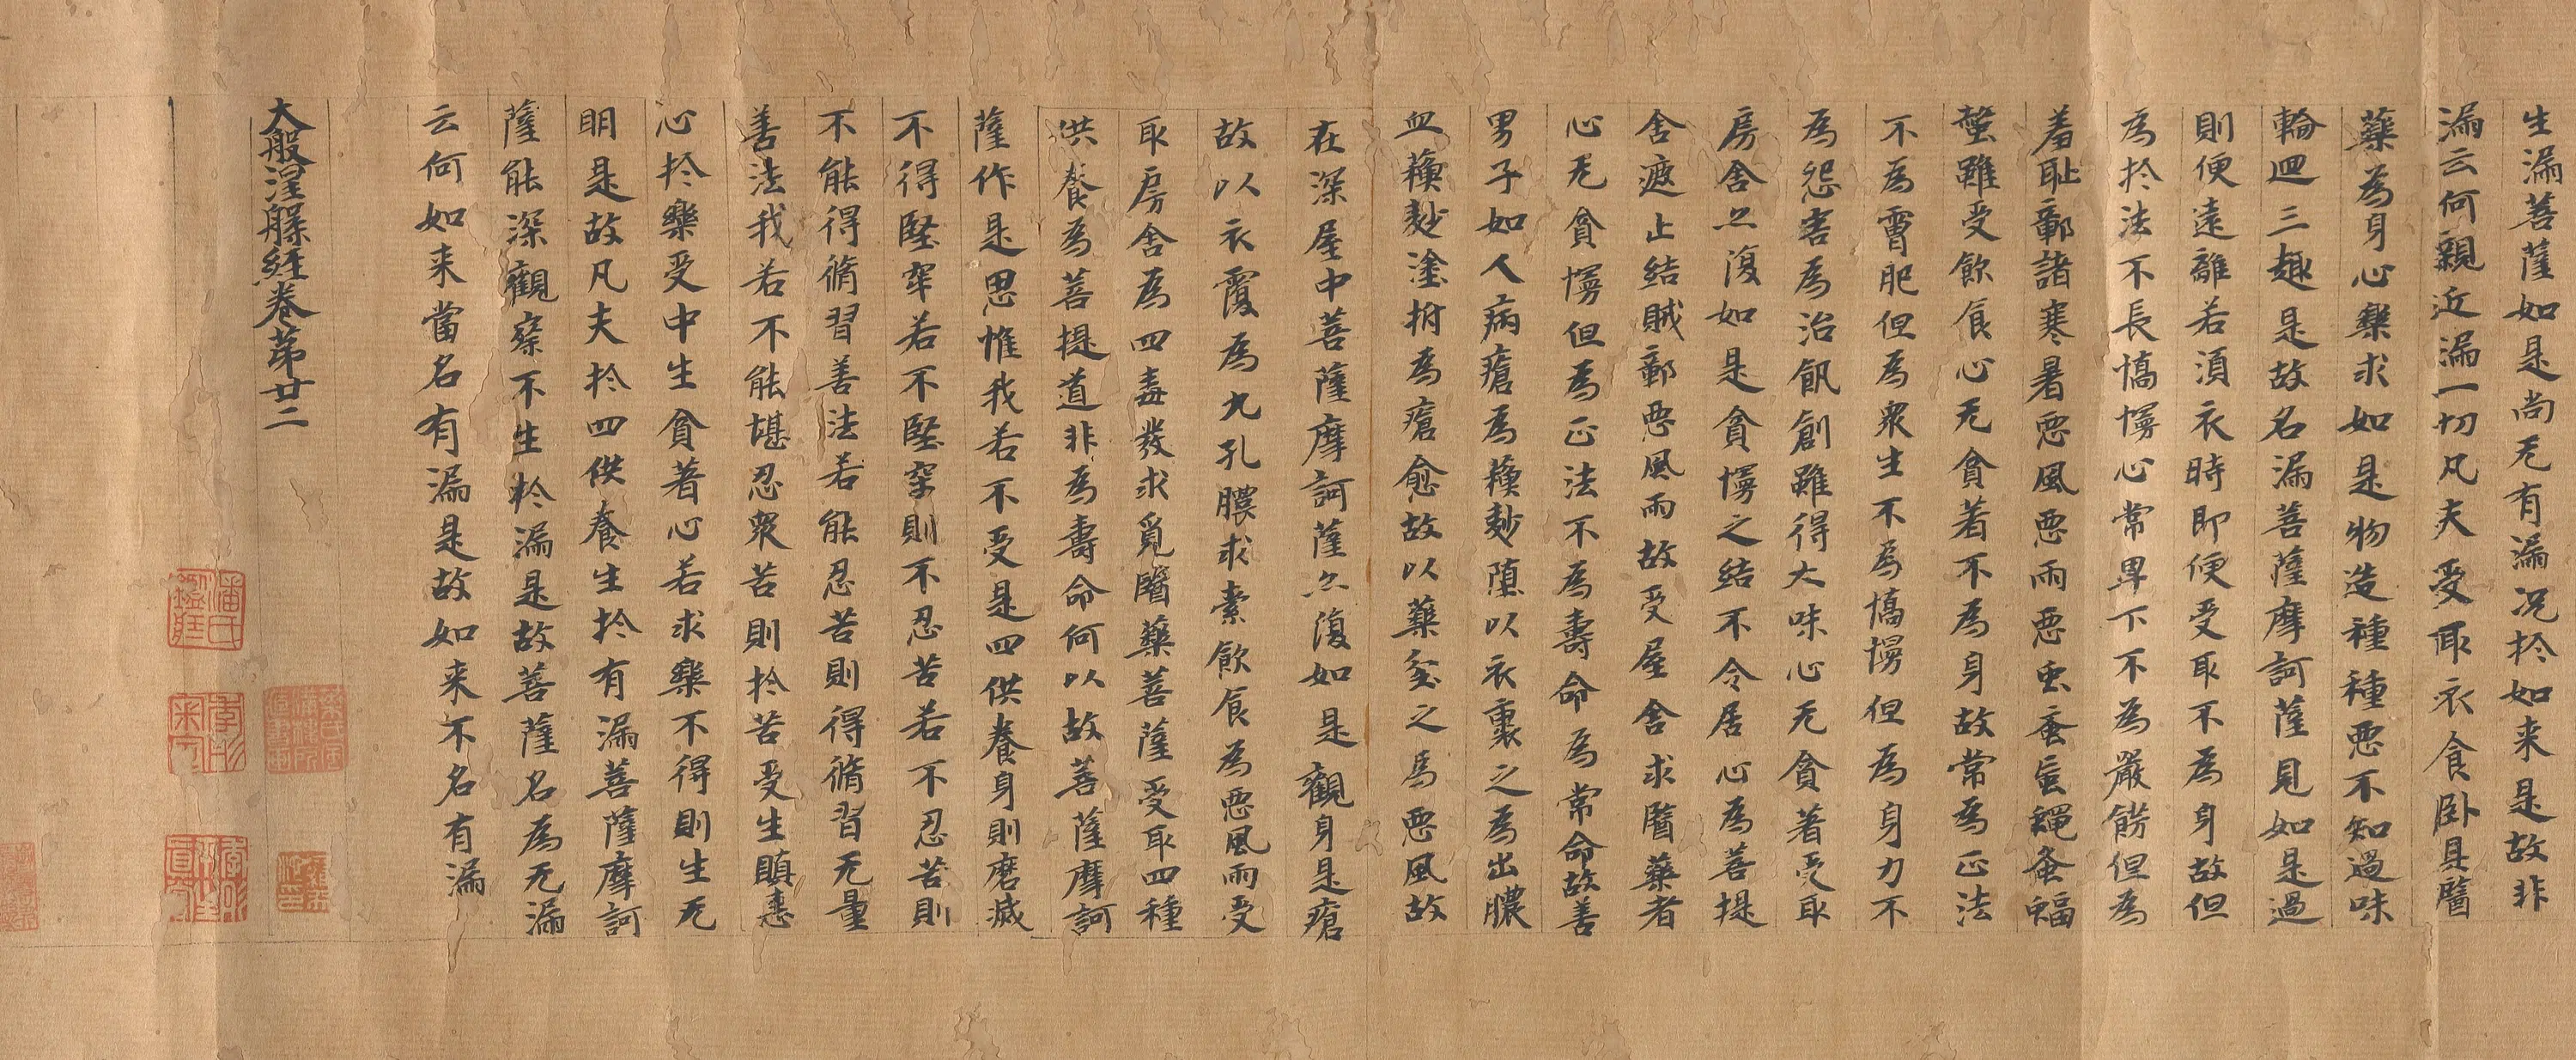 生漏菩薩如是尚无有漏况扵如来是故非
漏云何親近漏一切凡夫受取衣食卧具醫
藥為身心樂求如是物造種種惡不知過味
輪迴三趣是故名漏菩薩摩訶薩見如是過
則便遠離若須衣時即便受取不為身故但
為扵法不長憍慢心常卑下不為嚴餝但為
羞耻鄣諸寒暑惡風惡雨惡虫蚤虱蠅蚤蝠
螫雖受飲食心无貪著不為身故常為正法
不為膚肥但為衆生不為憍慢但為身力不
為怨害為治飢創雖得大味心无貪著受取
房舍亦復如是貪慢之結不令居心為菩提
舍遮止結賊鄣惡風雨故受屋舍求醫藥者
心无貪慢但為正法不為壽命為常命故善
男子如人病瘡為蘓麨塗以衣裹之為出膿
血蘓麨塗拊為瘡愈故以藥坌之為惡風故
在深屋中菩薩摩訶薩亦復如是觀身是瘡
故以衣覆為九孔膿求索飲食為惡風雨受
取房舍為四毒發求覓醫藥菩薩受取四種
供養為菩提道非為壽命何以故菩薩摩訶
薩作是思惟我若不受是四供養身則磨滅
不得堅牢若不堅牢則不忍苦若不忍苦則
不能得脩習善法若能忍苦則得脩習无量
善法我若不能堪忍衆苦則扵苦受生瞋恚
心扵樂受中生貪著心若求樂不得則生无
明是故凡夫扵四供養生扵有漏菩薩摩訶
薩能深觀察不生扵漏是故菩薩名為无漏
云何如来當名有漏是故如来不名有漏
大般涅槃經卷苐廿二